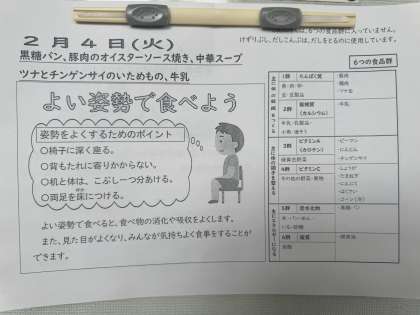 は、6つの食品群に入っていません。
けずりぶし、だしこんぶは、だしをとるのに使用しています。
2月4日(火)
黒糖パン、豚肉のオイスターソース焼き、中華スープ
ツナとチンゲンサイのいためもの、牛乳
6つの食品群
よい姿勢で食べよう
姿勢をよくするためのポイント
○椅子に深く座る。
○背もたれに寄りかからない。
○机と体は、こぶし一つ分あける。
○両足を床につける。
よい姿勢で食べると、食べ物の消化や吸収をよくします。
また、見た目がよくなり、みんなが気持ちよく食事をすることが
できます。
1群 たんぱく質
・豚肉
・鶏肉
・ツナ缶
魚・肉・卵・
豆・豆製品
2群 無機質
(カルシウム)
・牛乳
牛乳・乳製品・
小魚・海そう
3群 ビタミンA
(カロテン)
・ピーマン
・にんじん
・チンゲンサイ
緑黄色野菜
4群 ビタミンC
・しょうが
・たまねぎ
・にんにく
その他の野菜・果物
・コーン缶
5群 炭水化物
・黒糖パン
米・パン・めん・
いも・砂糖
6群 脂質
油脂